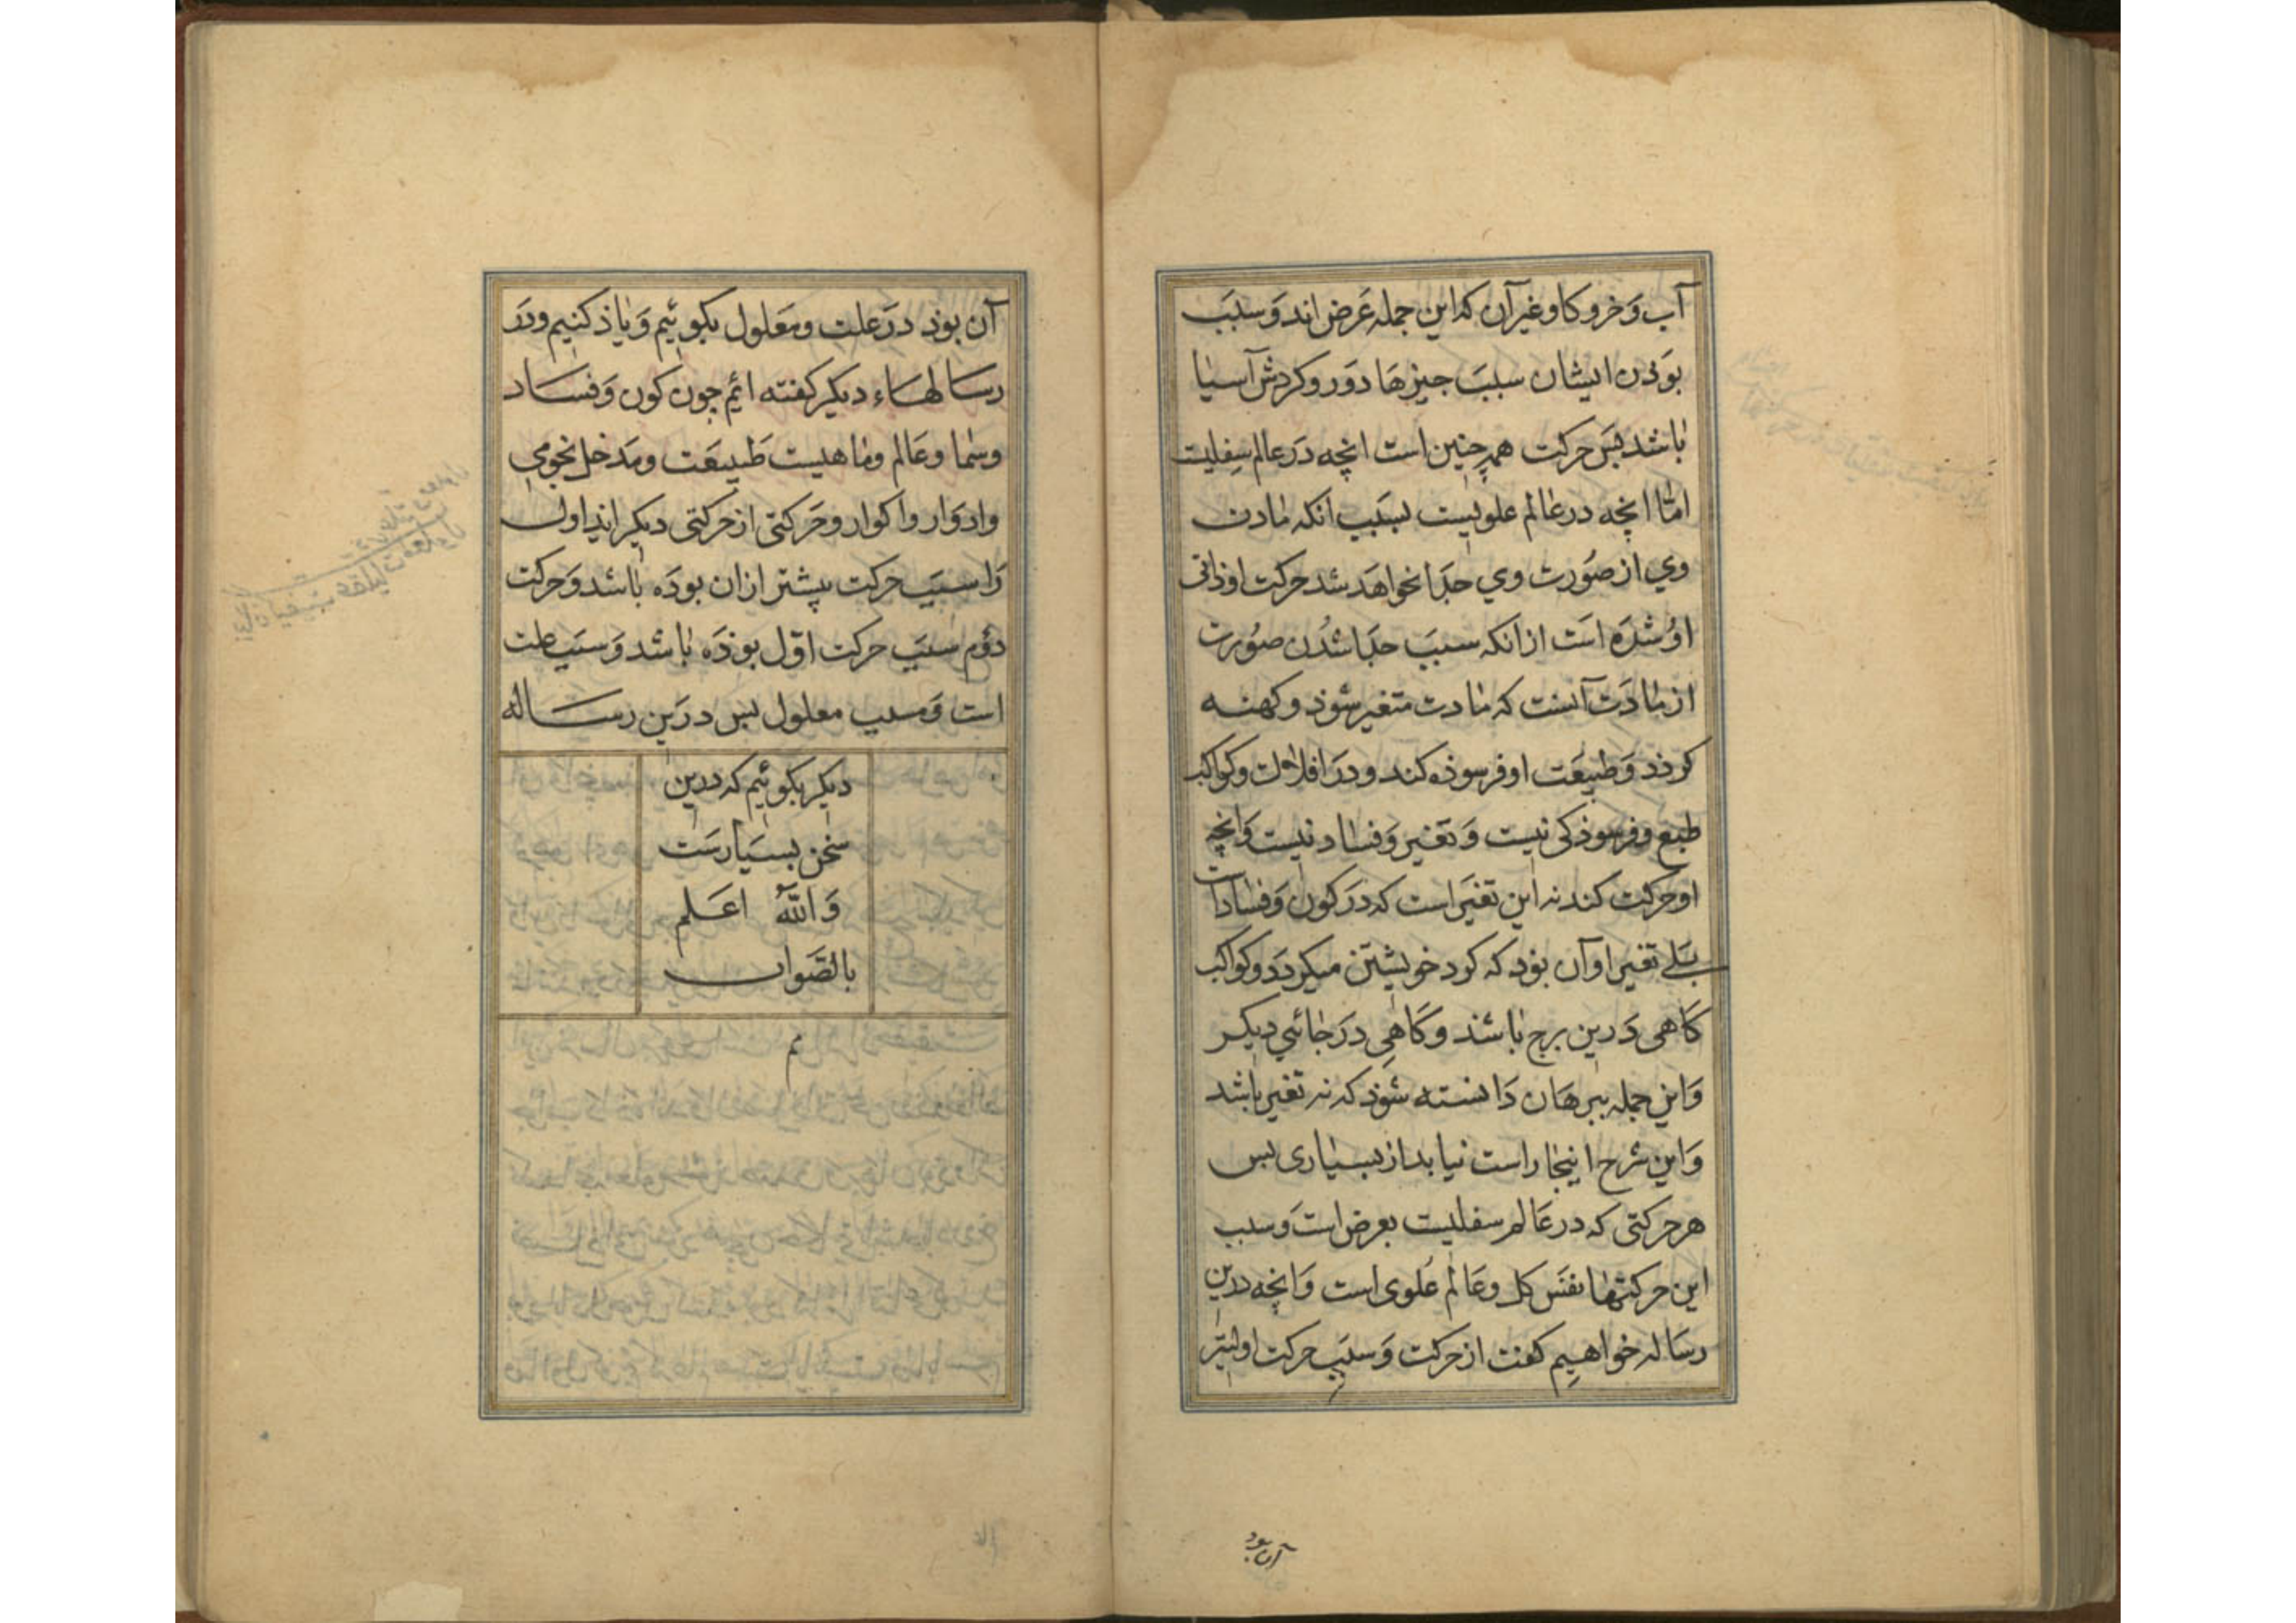 آب وَخر و كاو وغير آن كه اين جمله عَرض اند وَسبَب
بوَدن ايشان سببَ جيزهَا دَور و كردش آسيا
باشد بسَ حركت همچنين است انچه دَر عالم سِفليت
امّا انچه در عالم علويست بسَبب انكه مادت
وي از صوُرت وي جدَا نخواهَد شد حركت او ذاتى
اوُ شدَه استَ از انكه سببَ جدَا شدُن صوُرت
از مادَت آنست كه مادت متغير شوذ و كهنه
كرذد وَطبيعَت او فرسوذه كند و دَر افلاك و كواكب
طبع و فرسوذكى نيست وَ تغيّر وَفساد نيست وَانچه
او حركت كند نه اين تغيَر است كه دَر كون وَفساد است
بَلے تغير او آن بوَد كه كرد خويشتن ميكردَد و كواكب
كَاهى دَرين برج باشند و كَاهِى دَر جائي ديكر
وَاين جمله ببرهَان دَانسته شوَذ كه نه تغير باشد
وَاين شرح اينجا راست نيايد از بسيارى بس
هر حركتى كه در عَالم سفليت بعرض استَ وَسبب
اين حركتها نفسَ كل وعَالم عُلوى است وَانچه درين
رسَاله خواهيم كفت از حركت وَسببَ حركت اوليتر
آن بود
آن بوَذ درَ علت ومَعلول بكوئيم وَياذ كنيم ودَر
رسالهاء ديكر كفته ائيم جون كون وَفسَاد
وسَما وعَالم وماهيت طبيعَت ومَدخل نجومي
وادوَار واكوار وحَركتى از حركتى ديكر ايذ اول
رَا سببَ حركت پيشتر ازان بودَه باشد وَحركت
دوُم سببَ حركت اوّل بوذَه باشد وَسبَب علت
است وَمسبب معلول بس درَين رساله
ديكر بكوئيم كه درين
سخن بسيَارسَت
وَاللهُ اعَلم
بالصَّواب
تم